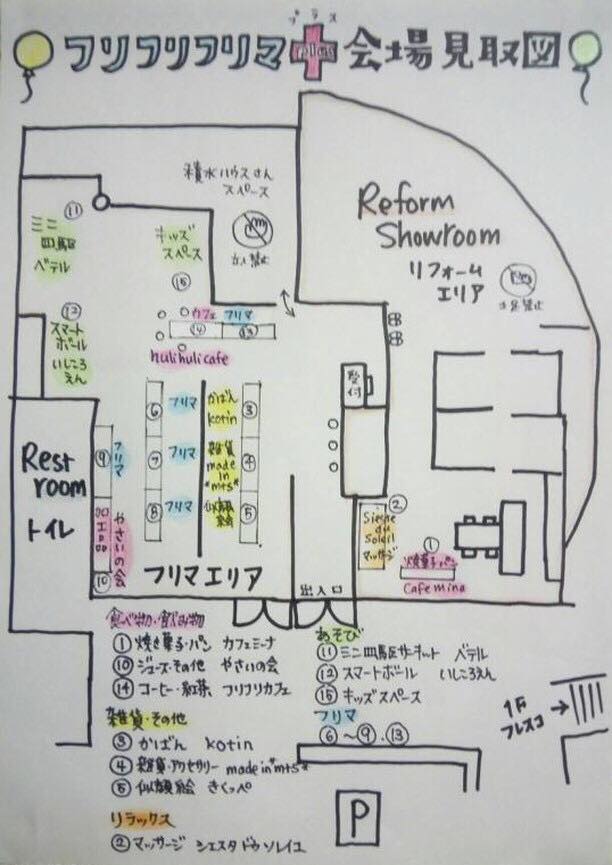 プラス
フリフリフリマ plus 会場見取図
積水ハウスさん
スペース
立入禁止
Reform
Showroom
リフォーム
エリア
土足禁止
⑪
ミニ
四駆
ベテル
キッズ
スペース
⑮
⑫
スマート
ボール
いしころ
えん
カフェ フリマ
⑭ ⑬
hulihulicafe
受付
⑥ フリマ かばん kotin ③
⑦ フリマ 雑貨 made in *mts* ④
⑧ フリマ 似顔絵 ⑤
Rest
room
トイレ
⑨ フリマ
やさいの会
⑩
フリマエリア
出入口
②
Sieste
du
Soleil
マッサージ
①
焼菓子パン
Cafe mina
食べ物・飲み物
①焼き菓子・パン カフェミーナ
⑩ジュース・その他 やさいの会
⑭コーヒー・紅茶 フリフリカフェ
雑貨・その他
③かばん kotin
④雑貨・アクセサリー made in *mts*
⑤似顔絵 きくっぺ
リラックス
②マッサージ シエスタドゥソレイユ
あそび
⑪ミニ四駆サーキット ベテル
⑫スマートボール いしころえん
⑮キッズスペース
フリマ
⑥〜⑨.⑬
1F
フレスコ
P